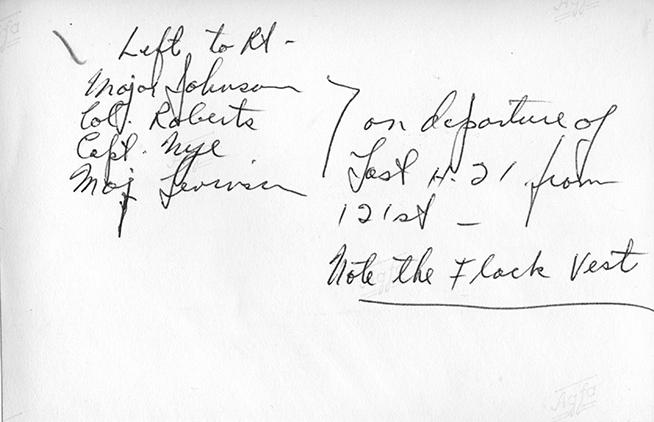 Left to Rt -
Major Johnson
Col. Roberts
Capt. Nye
Maj
on departure of
Last H-21 from
121st -
Note the Flack Vest
Agfa